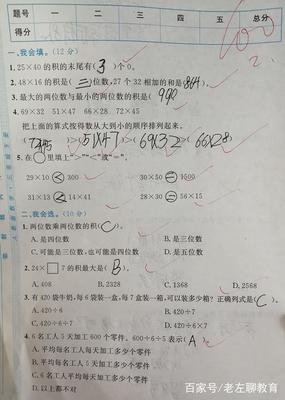 题号 一 二 三 四 五 总分
得分
一、我会填。(12分)
1. 25×40的积的末尾有( 3 )个0。
2. 48×16的积是(三)位数,27个32相加的和是(864)。
3. 最大的两位数与最小的两位数的积是(990)
4. 69×32 51×47 66×28 72×45
把上面的算式按得数从大到小的顺序排列起来。
>(51×47)>(69×32)>(66×28
5. 在○里填上“>”“<”或“=”。
29×10 < 300 30×50 = 1500
31×13 < 14×41 28×30 = 56×15
二、我会选。(10分)
1. 两位数乘两位数的积( C )。
A. 是四位数 B. 是三位数
C. 可能是三位数,也可能是四位数 D. 是五位数
2. 24×□7的积最大是( B )。
A. 408 B. 2328 C. 1368 D. 2568
3. 有420袋牛奶,每6袋装一盒,每7盒装一箱,可以装多少箱?正确列式是( C )。
A. 420÷6 B. 420÷7
C. 420÷6÷7 D. 420÷6×7
4. 6名工人5天加工600个零件。600÷6÷5表示( A
A. 平均每名工人每天加工多少个零件
B. 平均每名工人5天加工多少个零件
C. 6名工人平均每天加工多少个零件
D. 以上都不对
百家号/老左聊教育